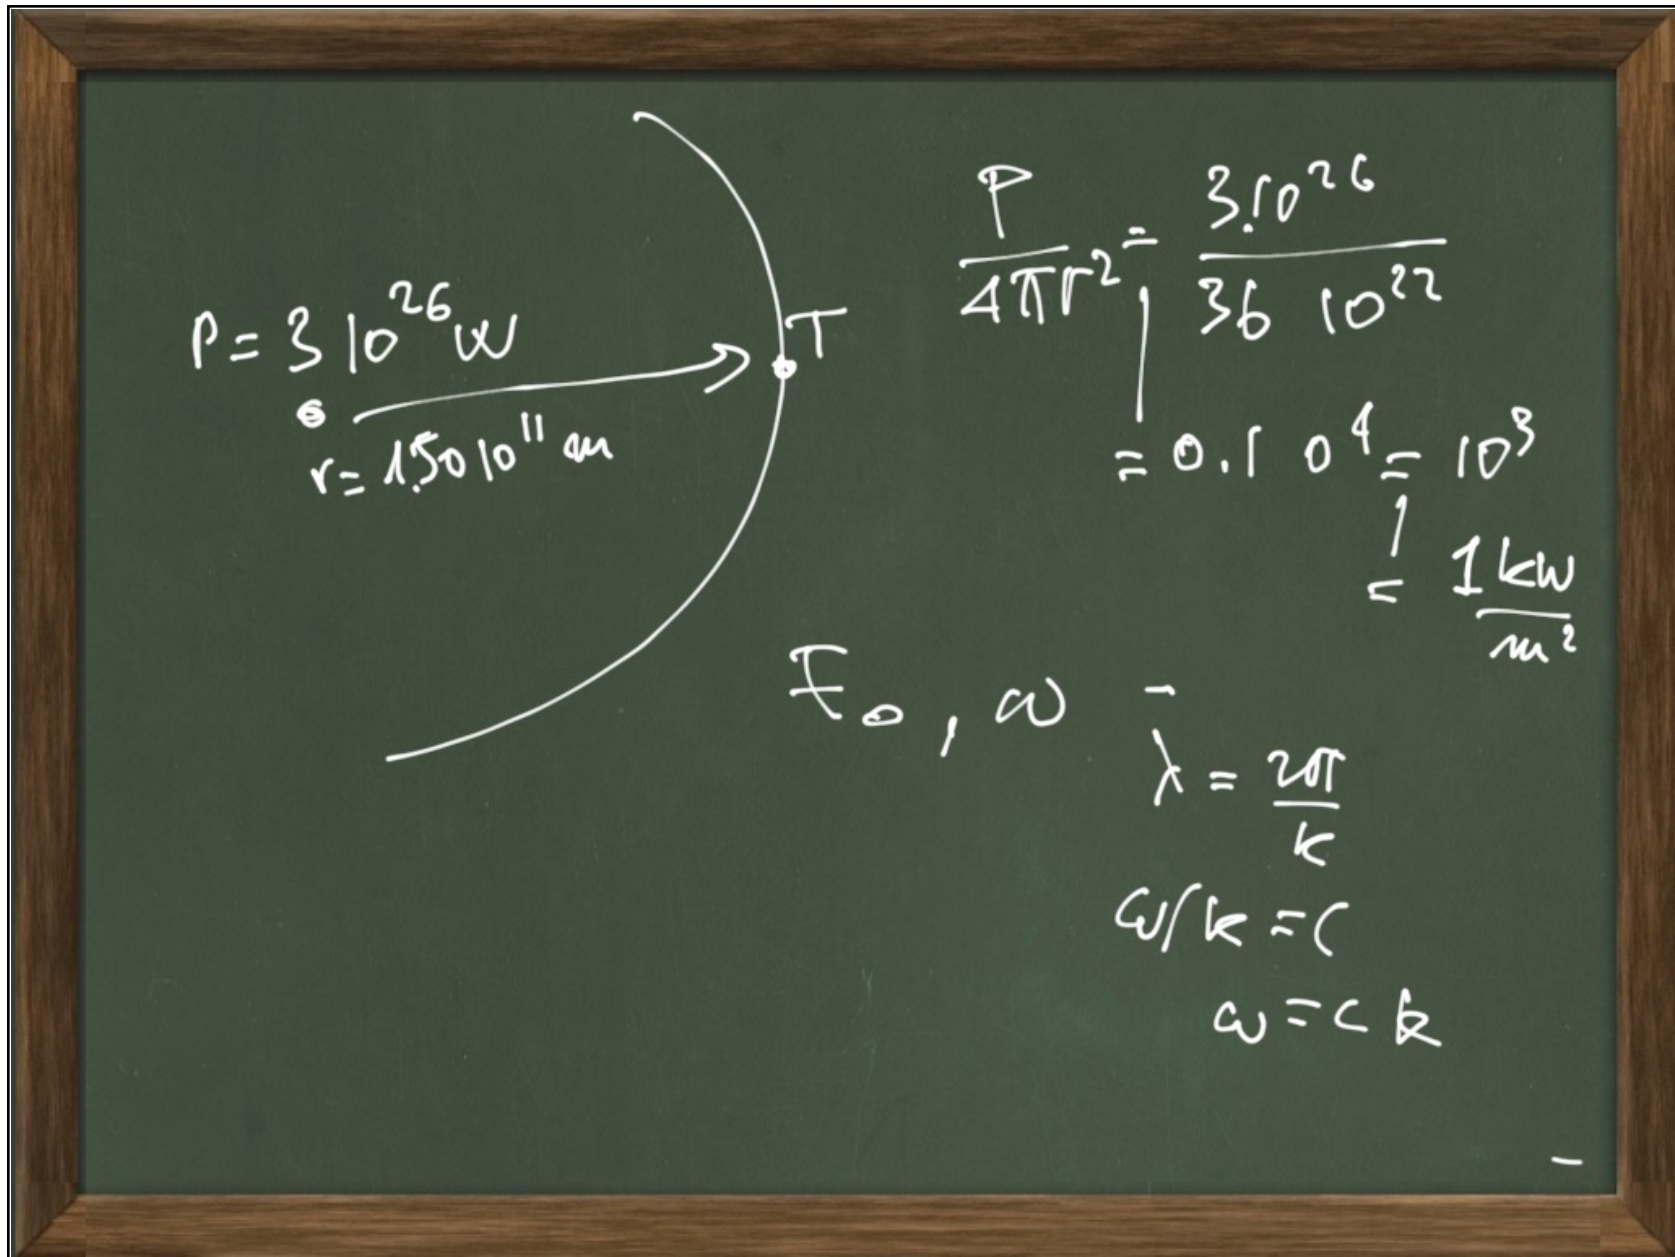 P = 3 10²⁶ W
r = 1.50 10¹¹ m
T
P / 4πr² = 3.10²⁶ / 36 10²²
= 0.1 0⁴ = 10³
= 1 kW / m²
E₀, ω
λ = 2π / k
ω/k = c
ω = c k